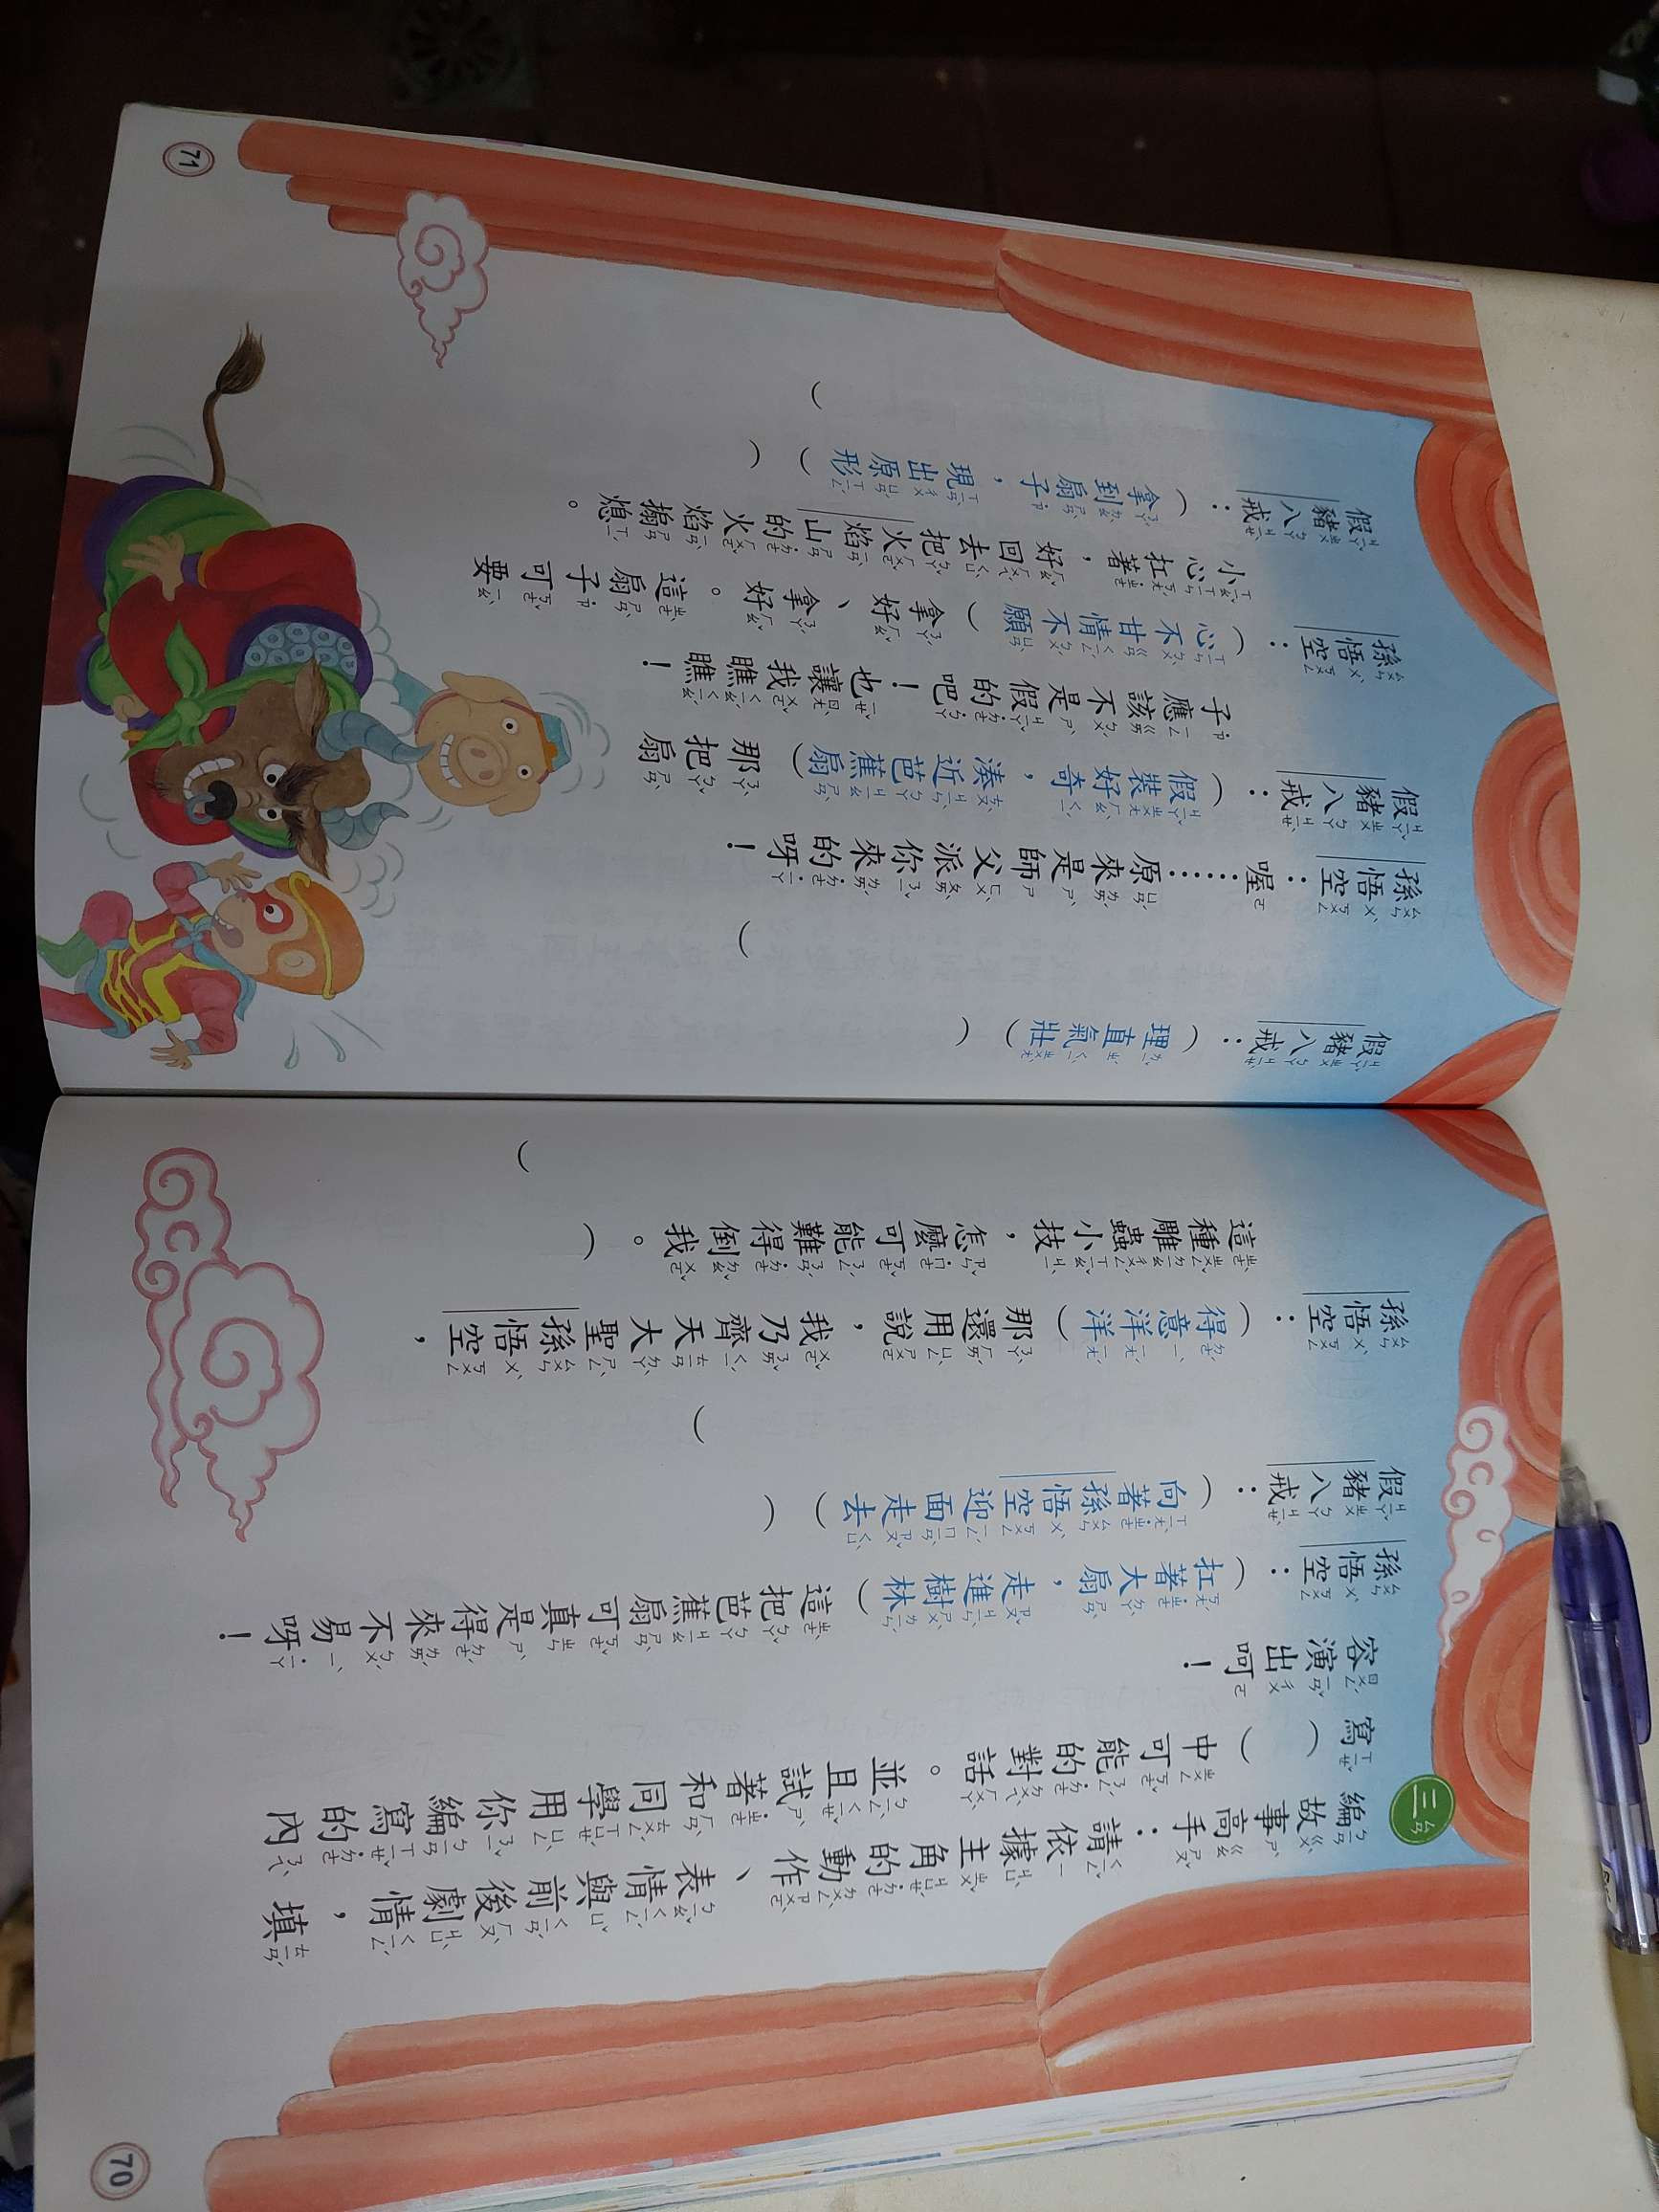 三
編故事高手：請依據主角的動作、表情與前後劇情，填
寫（　）中可能的對話。並且試著和同學用你編寫的內
容演出呵！
孫悟空：（扛著大扇，走進樹林）這把芭蕉扇可真是得來不易呀！
假豬八戒：（向著孫悟空迎面走去）（
）
孫悟空：（得意洋洋）那還用說，我乃齊天大聖孫悟空，
這種雕蟲小技，怎麼可能難得倒我。（
）
70
假豬八戒：（理直氣壯）（
）
孫悟空：喔……原來是師父派你來的呀！
假豬八戒：（假裝好奇，湊近芭蕉扇）那把扇
子應該不是假的吧！也讓我瞧瞧！
孫悟空：（心不甘情不願）拿好、拿好。這扇子可要
小心扛著，好回去把火焰山的火焰搧熄。
假豬八戒：（拿到扇子，現出原形）（
）
71